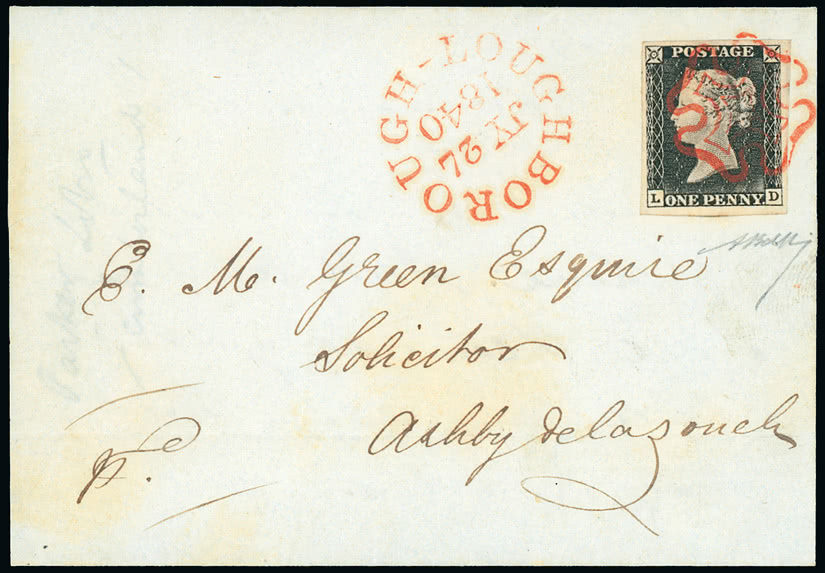 LOUGHBOROUGH
JY 27
1840
POSTAGE
L ONE PENNY D
E. M. Green Esquire
Solicitor
Ashby de la zouch